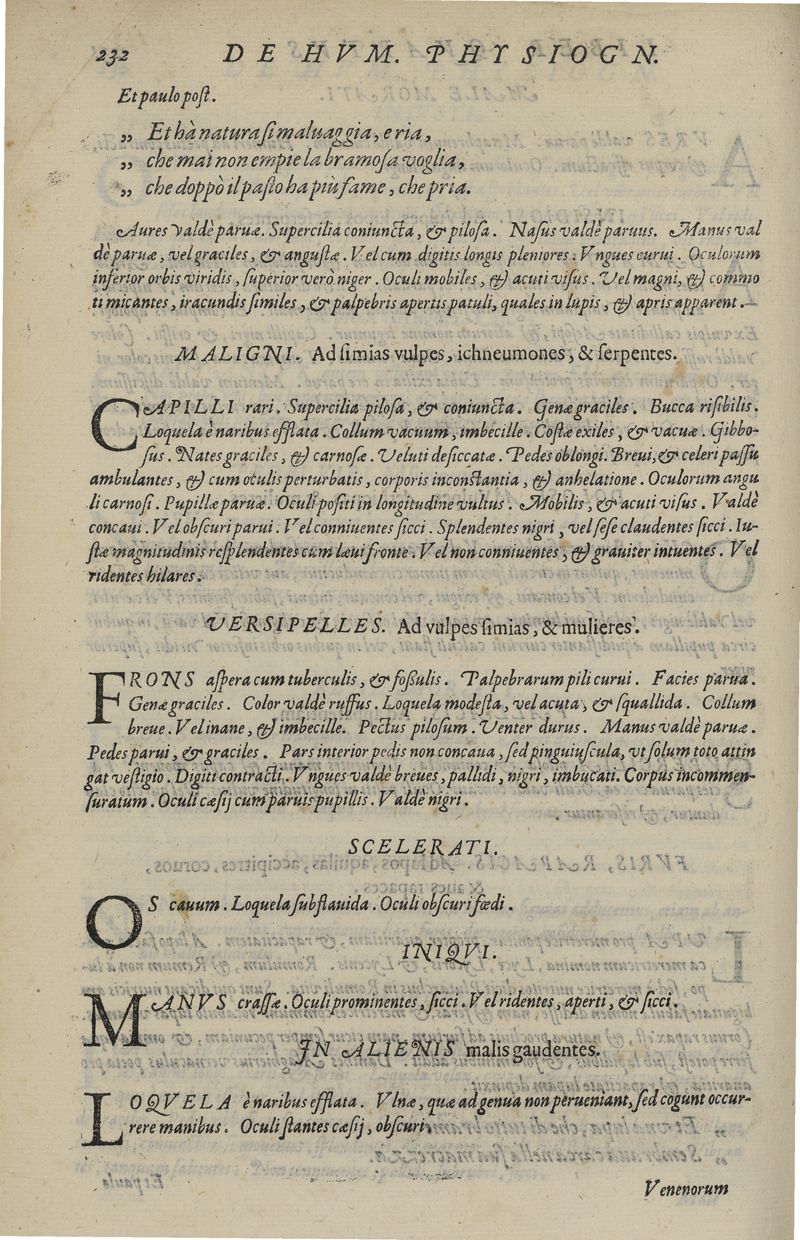 232 DE HVM. PHYSIOGN.
Et paulo poſt.
„ Et hà natura ſi maluaggia, e ria,
„ che mai non empie la bramoſa voglia,
„ che doppò il paſto ha più fame, che pria.
Aures valdè paruæ. Supercilia coniuncta, & piloſa. Naſus valdè paruus. Manus val
dè paruæ, vel graciles, & anguſtæ. Vel cum digitis longis pleniores. Vngues curui. Oculorum
inferior orbis viridis, ſuperior verò niger. Oculi mobiles, & acuti viſus. Vel magni, & commo
ti micantes, iracundis ſimiles, & palpebris apertis patuli, quales in lupis, & apris apparent.
MALIGNI. Ad ſimias vulpes, ichneumones, & ſerpentes.
CAPILLI rari. Supercilia piloſa, & coniuncta. Genæ graciles. Bucca riſibilis.
Loquela è naribus efflata. Collum vacuum, imbecille. Coſtæ exiles, & vacuæ. Gibbo-
ſus. Nates graciles, & carnoſæ. Veluti deſiccatæ. Pedes oblongi. Breui, & celeri paſſu
ambulantes, & cum oculis perturbatis, corporis inconſtantia, & anhelatione. Oculorum angu
li carnoſi. Pupillæ paruæ. Oculi poſiti in longitudine vultus. Mobilis, & acuti viſus. Valdè
concaui. Vel obſcuri parui. Vel conniuentes ſicci. Splendentes nigri, vel ſeſe claudentes ſicci. Iu-
ſtæ magnitudinis reſplendentes cum læui fronte. Vel non conniuentes, & grauiter intuentes. Vel
ridentes hilares.
VERSIPELLES. Ad vulpes ſimias, & mulieres.
FRONS aſpera cum tuberculis, & foſſulis. Palpebrarum pili curui. Facies parua.
Genæ graciles. Color valdè ruffus. Loquela modeſta, vel acuta, & ſquallida. Collum
breue. Vel inane, & imbecille. Pectus piloſum. Venter durus. Manus valdè paruæ.
Pedes parui, & graciles. Pars interior pedis non concaua, ſed pinguiuſcula, vt ſolum toto attin
gat veſtigio. Digiti contracti. Vngues valdè breues, pallidi, nigri, imbucati. Corpus incommen-
ſuratum. Oculi cæſij cum paruis pupillis. Valdè nigri.
SCELERATI.
OS cauum. Loquela ſubflauida. Oculi obſcuri fœdi.
INIQVI.
MANVS craſſæ. Oculi prominentes, ſicci. Vel ridentes, aperti, & ſicci.
IN ALIENIS malis gaudentes.
LOQVELA è naribus efflata. Vlnæ, quæ ad genua non perueniant, ſed cogunt occur-
rere manibus. Oculi ſtantes cæſij, obſcuri.
Venenorum